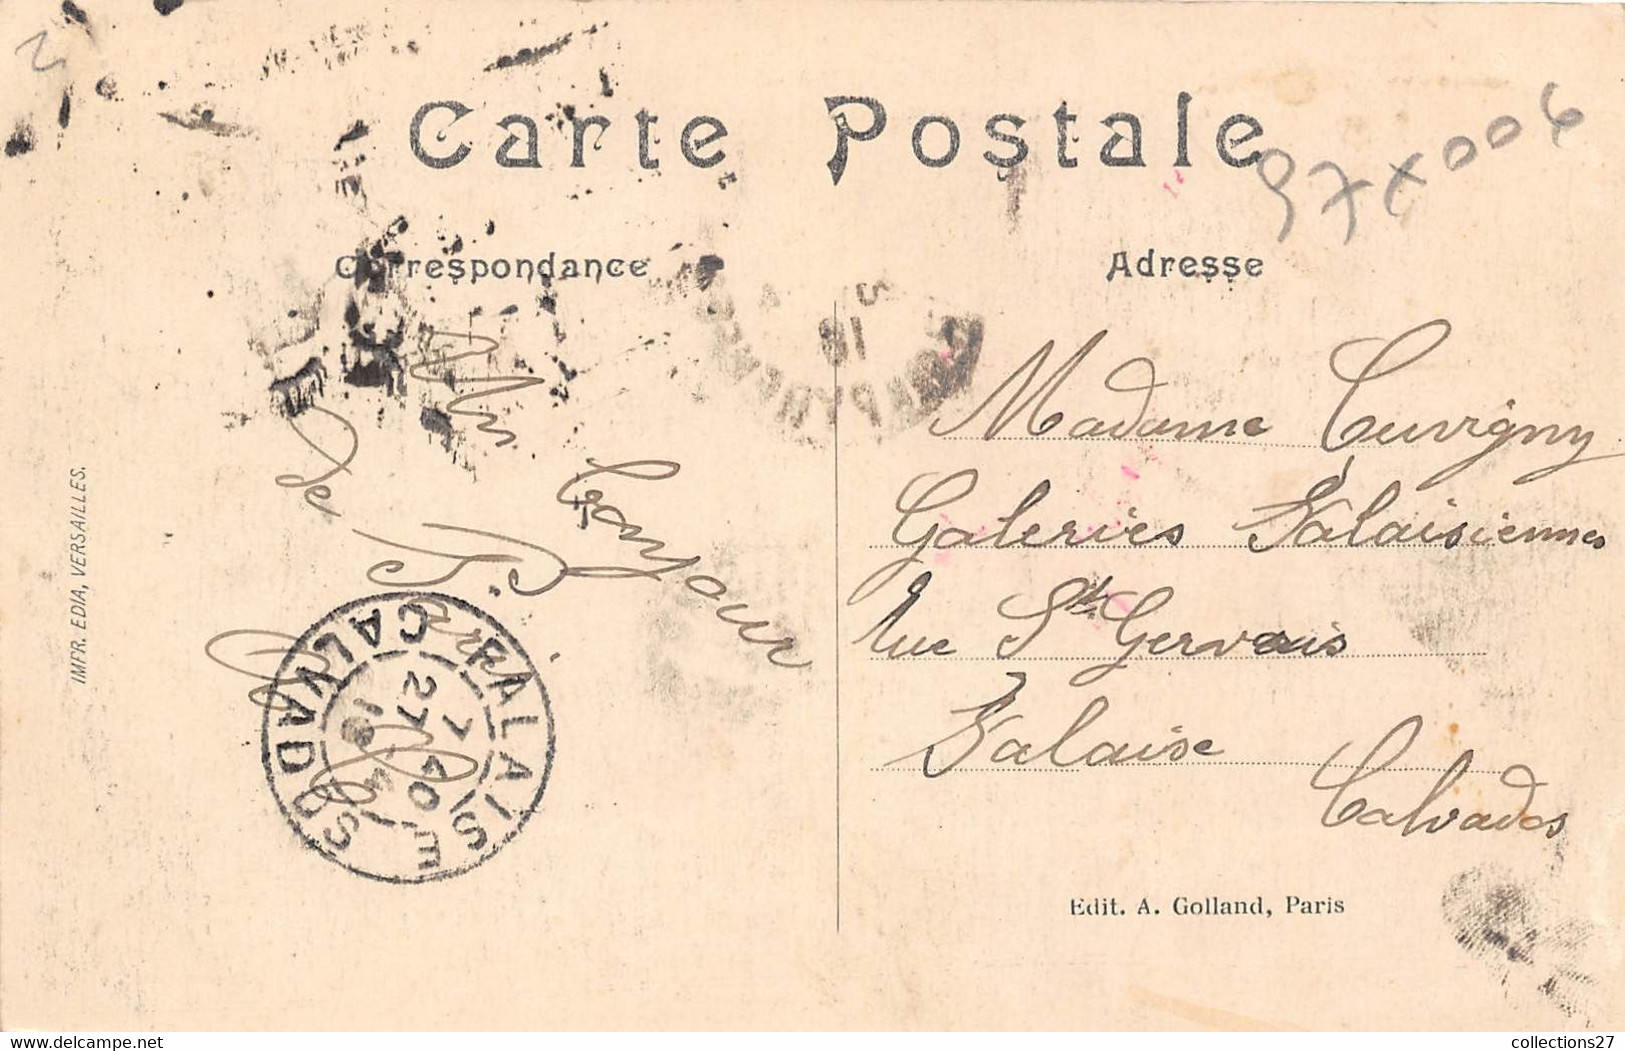 Carte Postale
97XX006
Correspondance
Adresse
Un bonjour
de Paris
Madame Cuvigny
Galeries Falaisiennes
rue St Gervais
Falaise
Calvados
FALAISE
CALVADOS
7 40
27
Edit. A. Golland, Paris
IMPR. EDIA, VERSAILLES.
collections27